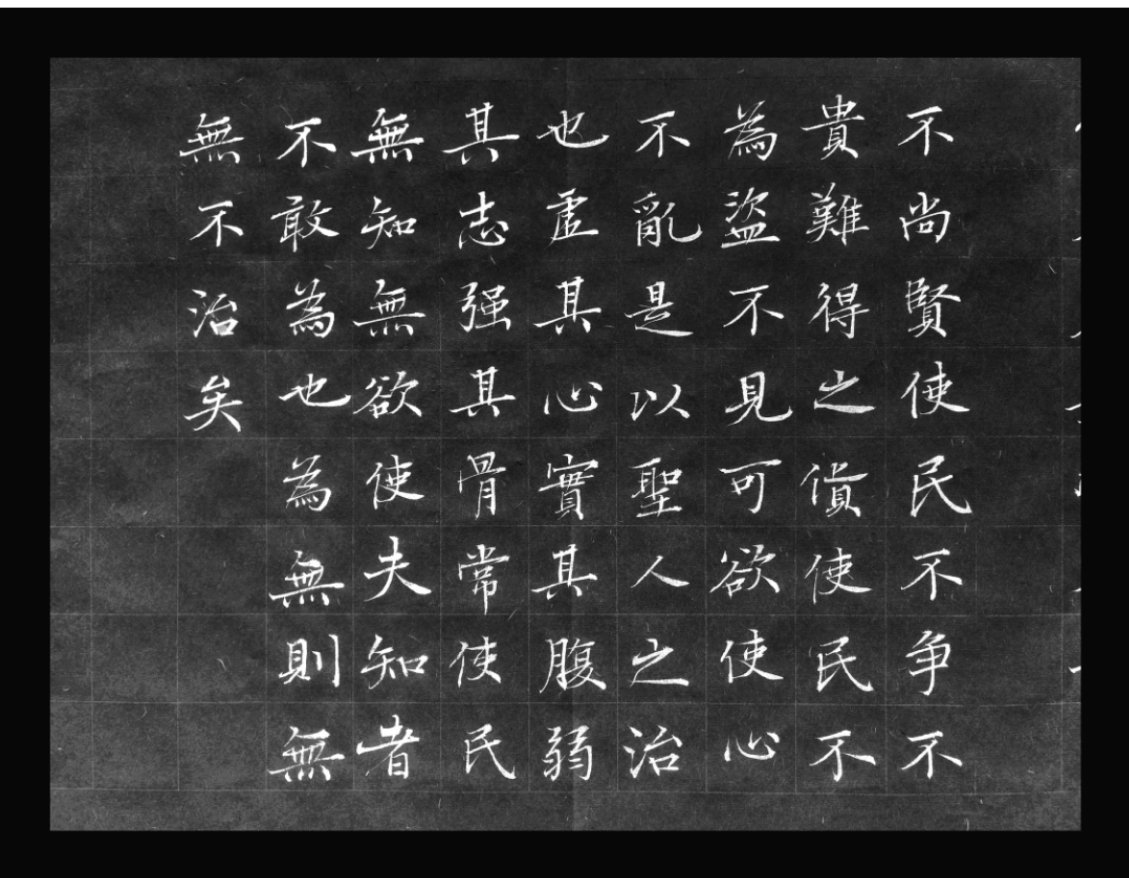 不尚賢使民不争不
貴難得之貨使民不
為盜不見可欲使心
不亂是以聖人之治
也虛其心實其腹弱
其志强其骨常使民
無知無欲使夫知者
不敢為也為無則無
無不治矣